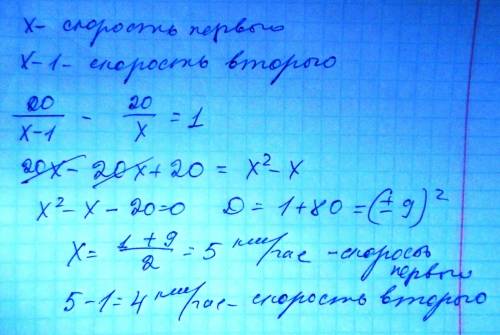 x - скорость первого
x-1 - скорость второго
20/(x-1) - 20/x = 1
20x - 20x + 20 = x² - x
x² - x - 20 = 0   D = 1 + 80 = (± 9)²
x = (1 + 9)/2 = 5 км/час - скорость первого
5 - 1 = 4 км/час - скорость второго